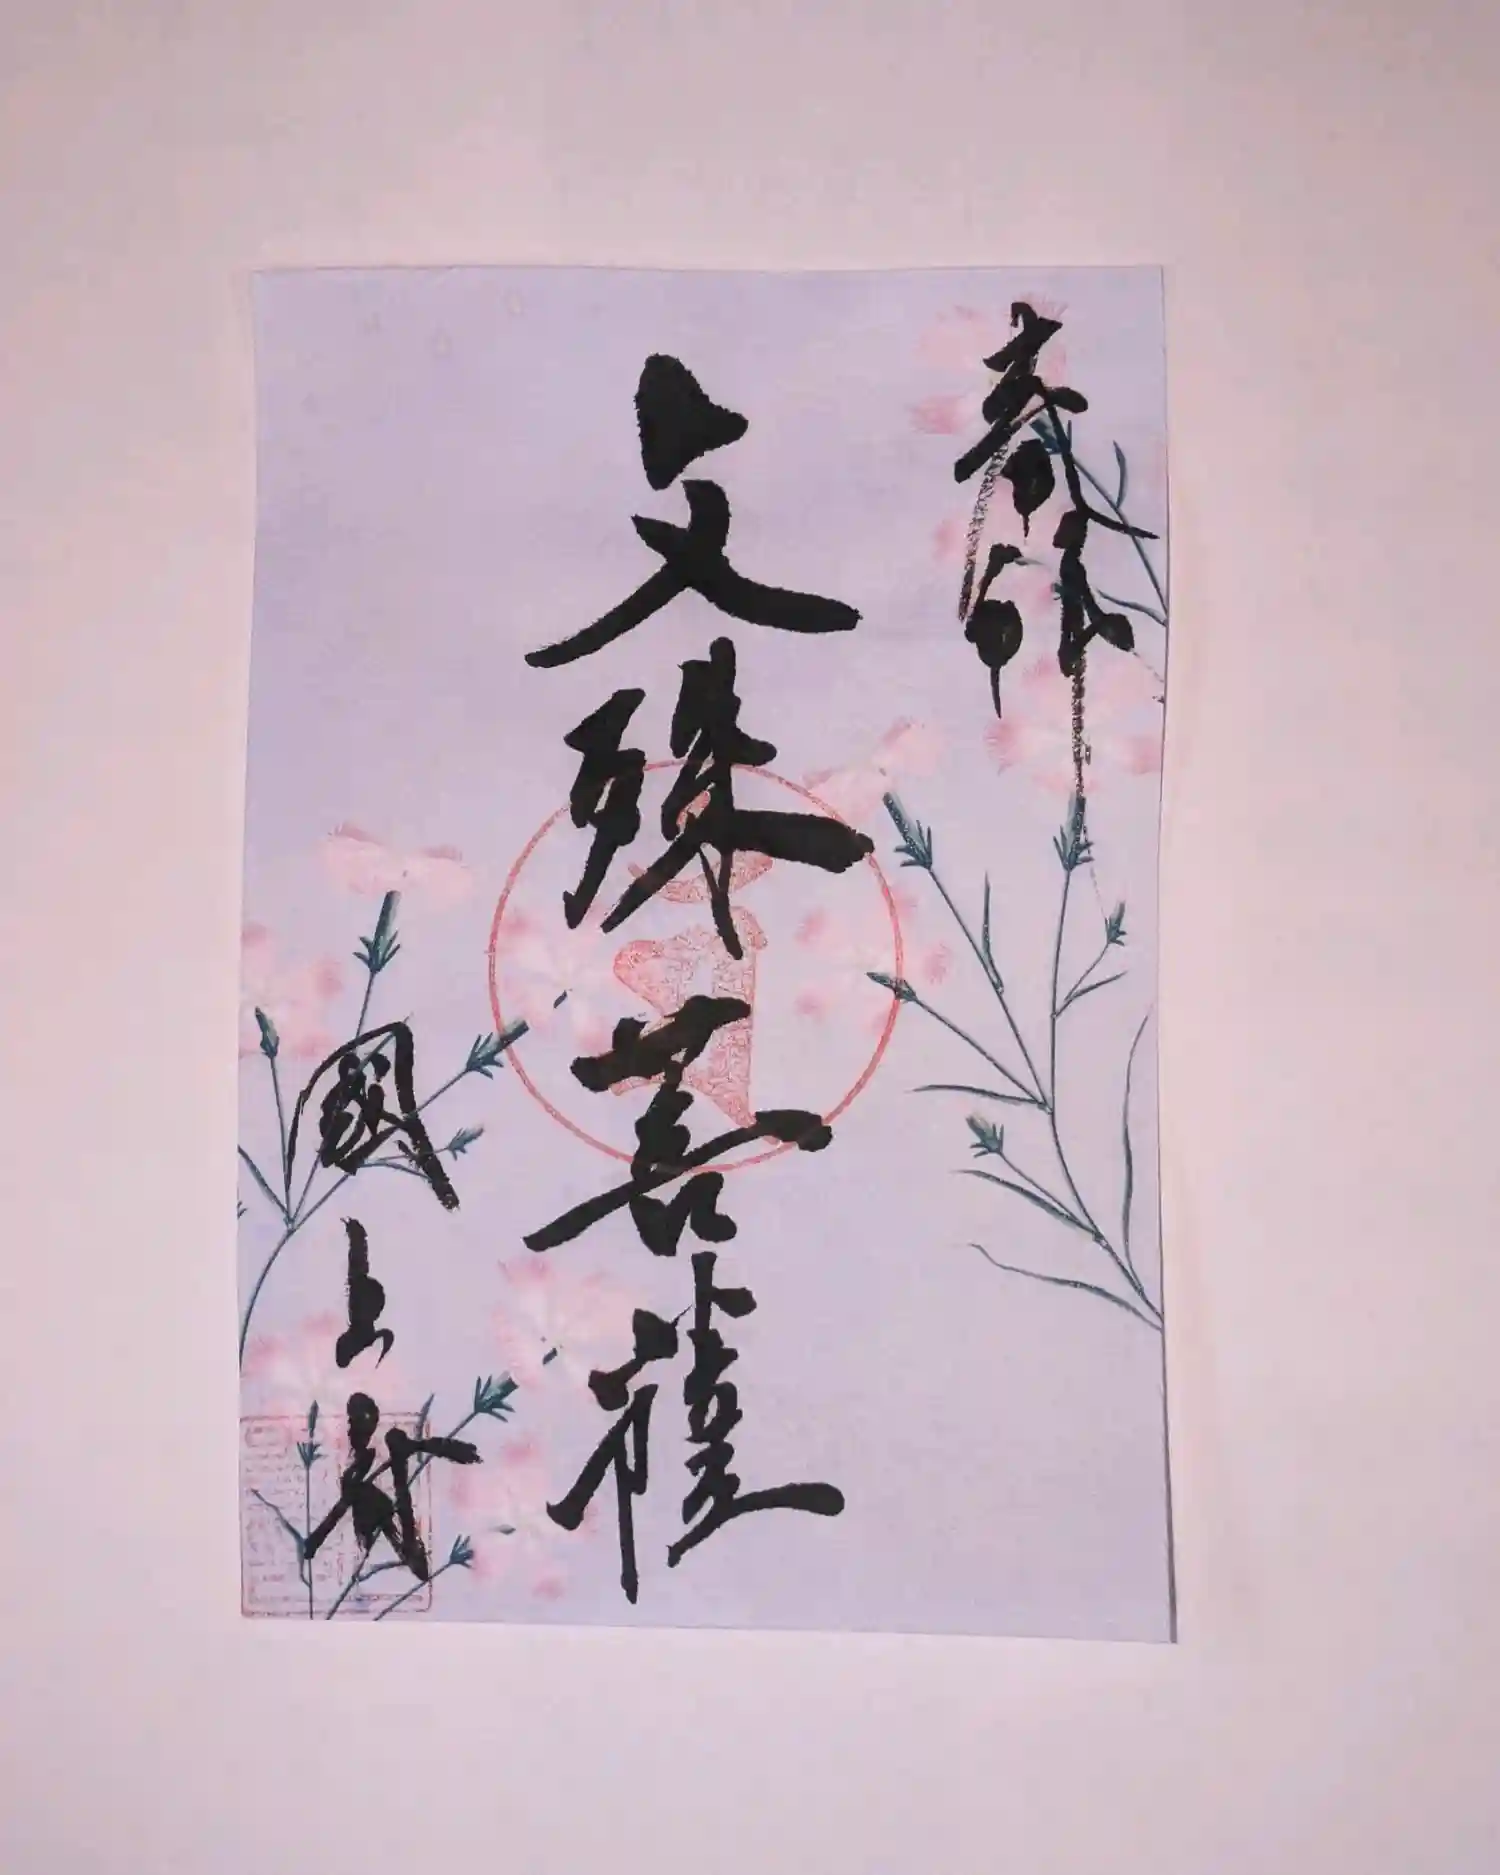 奉拝
文殊菩薩
國上寺